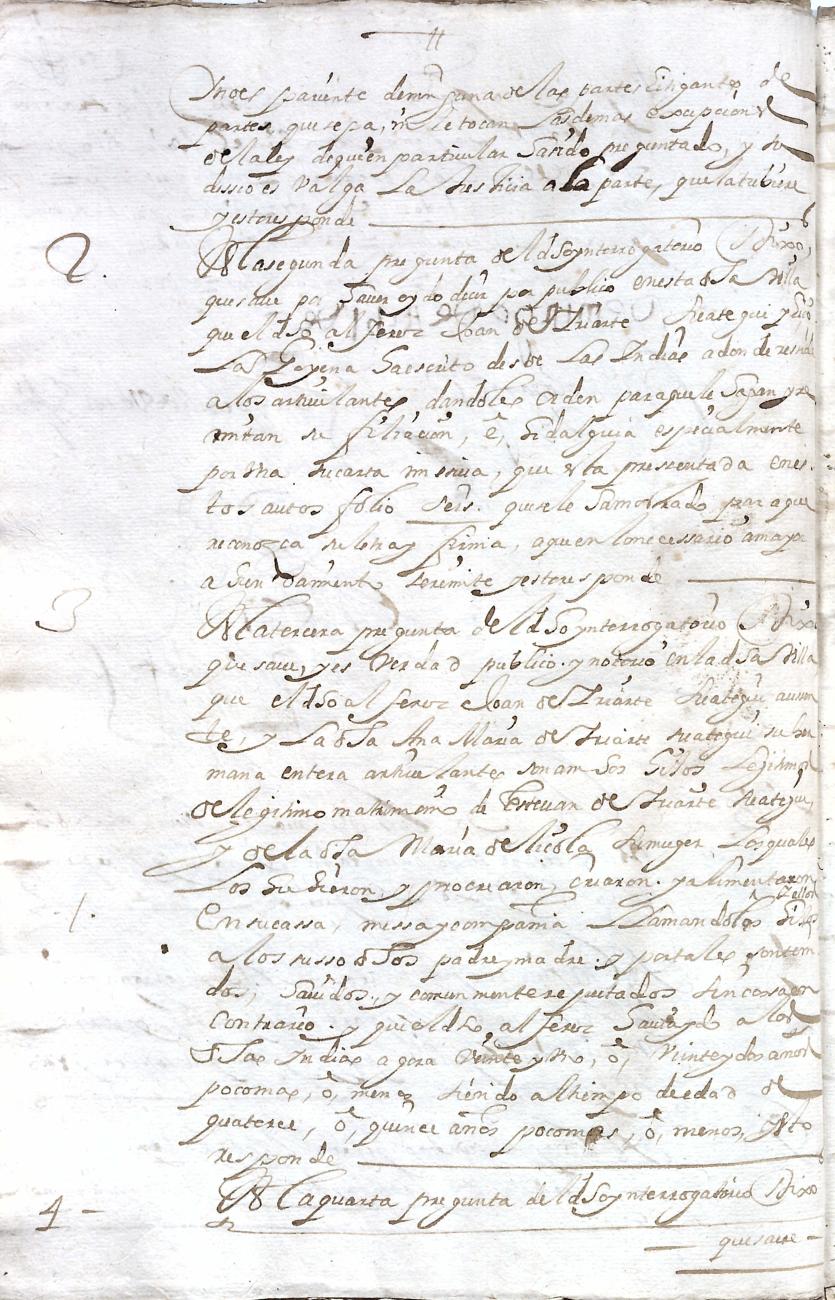 Y no es pariente de ninguna de las partes litigantes de
partes, que sepa, ni le tocan las demas excepciones
de la ley de que en particular ha sido preguntado, y su
desseo es valga la Justicia a la parte, que la tubiere
y esto responde
2. A la segunda pregunta del dho ynterrogatorio Dixo,
que save por haver oydo decir por publico en esta dha Villa
que el dho alferez Joan de Yriarte Reategui
La Goyena ha escrito desde Las Indias a donde reside
a los articulantes, dandoles orden para que le hagan y re
mitan su filiacion, è, hidalguia especialmente
por Una su carta missiva, que esta presentada en es
tos autos folio seis. que se le ha mostrado para que
reconozca su letra y firma, a que en lo necessario a mayor
a bundamiento se remite y esto responde
3 A la tercera pregunta del dho ynterrogatorio Dixo
que save, y es Verdad publico. y notorio en la dha Villa
que el dho alferez Joan de Yriarte Reategui ausen
te, y La dha Ana Maria de Yriarte Reategui su her
mana entera articulante son ambos hijos Legitimos
de legitimo matrimonio de Estevan de Yriarte Reategui,
y de la dha Maria de Licola su muger Los quales
Los hubieron, y procrearon, criaron. y alimentaron
y ellos
En su cassa, messa y compania Llamandoles hijos
a los susso dhos padre y madre. y por tales son teni
dos, havidos, y comunmente reputados sin cossa en
contrario. y que el dho alferez a los
dhas Indias agora Veinte y Uno, ò, Veinte y dos años
poco mas, ò, menos siendo al tiempo de edad de
quatorce, ò, quince años poco mas, ò, menos, y esto
responde
4 - A la quarta pregunta del dho ynterrogatorio Dixo
que save